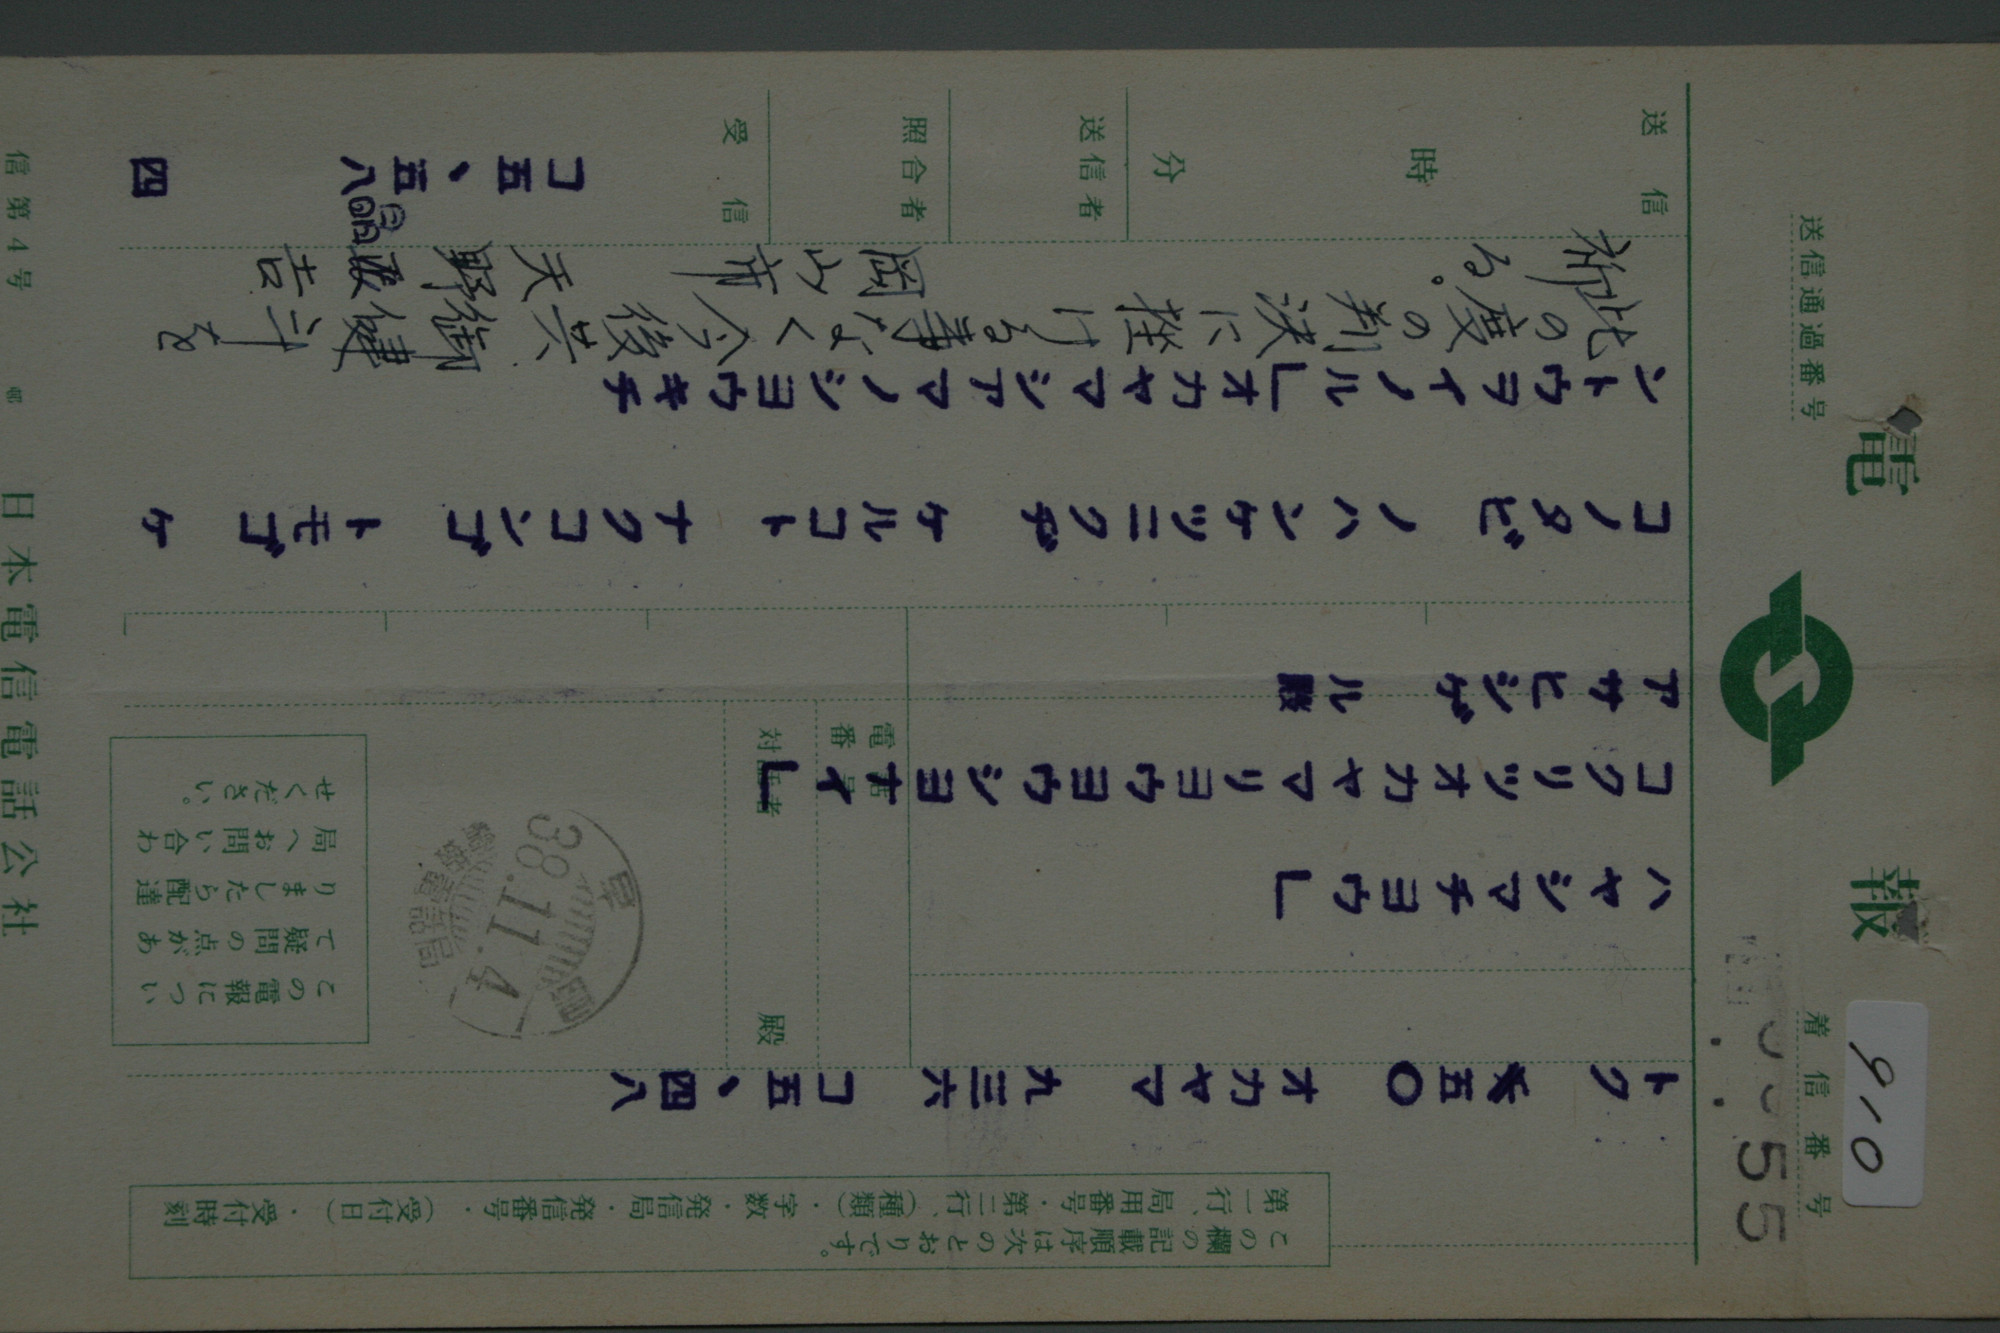 電報
送信通過番号
着信番号
910
55
この欄の記載順序は次のとおりです。
第一行、局用番号・第二行、(種類)・字数・発信局・発信番号・(受付日)・受付時刻
トク 五〇 オカヤマ 九三六 コ五、四八
ハヤシマチヨウ」
コクリツオカヤマリヨウヨウシヨナイ」
アサヒシゲル殿
電話番号
対話者 殿
早島
38.11.4
電報電話局
この電報につい
て疑問の点があ
りましたら配達
局へお問い合わ
せください。
コノタビノハンケツニクヂケルコトナクコンゴトモゴケ
ントウヲイノル」オカヤマシアマノシヨウキチ
此の度の判決に挫ける事なく今後共御健斗を
祈る。 岡山市 天野 吉
送信 時 分
送信者
照合者
受信
コ五、五八
四
信第4号
日本電信電話公社